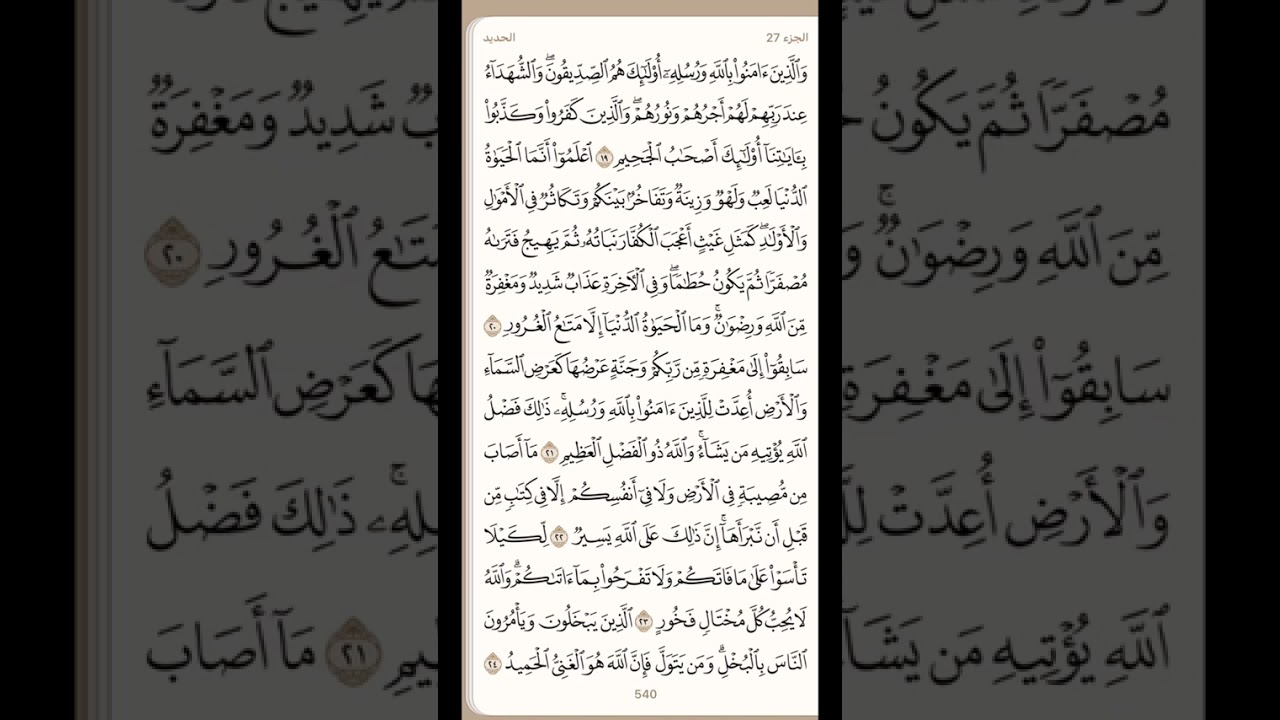 الجزء 27
الحديد
وَٱلَّذِينَ ءَامَنُوا۟ بِٱللَّهِ وَرُسُلِهِۦٓ أُو۟لَٰٓئِكَ هُمُ ٱلصِّدِّيقُونَ ۖ وَٱلشُّهَدَآءُ
عِندَ رَبِّهِمْ لَهُمْ أَجْرُهُمْ وَنُورُهُمْ ۖ وَٱلَّذِينَ كَفَرُوا۟ وَكَذَّبُوا۟
بِـَٔايَٰتِنَآ أُو۟لَٰٓئِكَ أَصْحَٰبُ ٱلْجَحِيمِ ١٩ ٱعْلَمُوٓا۟ أَنَّمَا ٱلْحَيَوٰةُ
ٱلدُّنْيَا لَعِبٌ وَلَهْوٌ وَزِينَةٌ وَتَفَاخُرٌۢ بَيْنَكُمْ وَتَكَاثُرٌ فِى ٱلْأَمْوَٰلِ
وَٱلْأَوْلَٰدِ ۖ كَمَثَلِ غَيْثٍ أَعْجَبَ ٱلْكُفَّارَ نَبَاتُهُۥ ثُمَّ يَهِيجُ فَتَرَىٰهُ
مُصْفَرًّا ثُمَّ يَكُونُ حُطَٰمًا ۖ وَفِى ٱلْـَٔاخِرَةِ عَذَابٌ شَدِيدٌ وَمَغْفِرَةٌ
مِّنَ ٱللَّهِ وَرِضْوَٰنٌ ۚ وَمَا ٱلْحَيَوٰةُ ٱلدُّنْيَآ إِلَّا مَتَٰعُ ٱلْغُرُورِ ٢٠
سَابِقُوٓا۟ إِلَىٰ مَغْفِرَةٍ مِّن رَّبِّكُمْ وَجَنَّةٍ عَرْضُهَا كَعَرْضِ ٱلسَّمَآءِ
وَٱلْأَرْضِ أُعِدَّتْ لِلَّذِينَ ءَامَنُوا۟ بِٱللَّهِ وَرُسُلِهِۦ ۚ ذَٰلِكَ فَضْلُ
ٱللَّهِ يُؤْتِيهِ مَن يَشَآءُ ۚ وَٱللَّهُ ذُو ٱلْفَضْلِ ٱلْعَظِيمِ ٢١ مَآ أَصَابَ
مِن مُّصِيبَةٍ فِى ٱلْأَرْضِ وَلَا فِىٓ أَنفُسِكُمْ إِلَّا فِى كِتَٰبٍ مِّن
قَبْلِ أَن نَّبْرَأَهَآ ۚ إِنَّ ذَٰلِكَ عَلَى ٱللَّهِ يَسِيرٌ ٢٢ لِّكَيْلَا
تَأْسَوْا۟ عَلَىٰ مَا فَاتَكُمْ وَلَا تَفْرَحُوا۟ بِمَآ ءَاتَىٰكُمْ ۗ وَٱللَّهُ
لَا يُحِبُّ كُلَّ مُخْتَالٍ فَخُورٍ ٢٣ ٱلَّذِينَ يَبْخَلُونَ وَيَأْمُرُونَ
ٱلنَّاسَ بِٱلْبُخْلِ ۗ وَمَن يَتَوَلَّ فَإِنَّ ٱللَّهَ هُوَ ٱلْغَنِىُّ ٱلْحَمِيدُ ٢٤
540